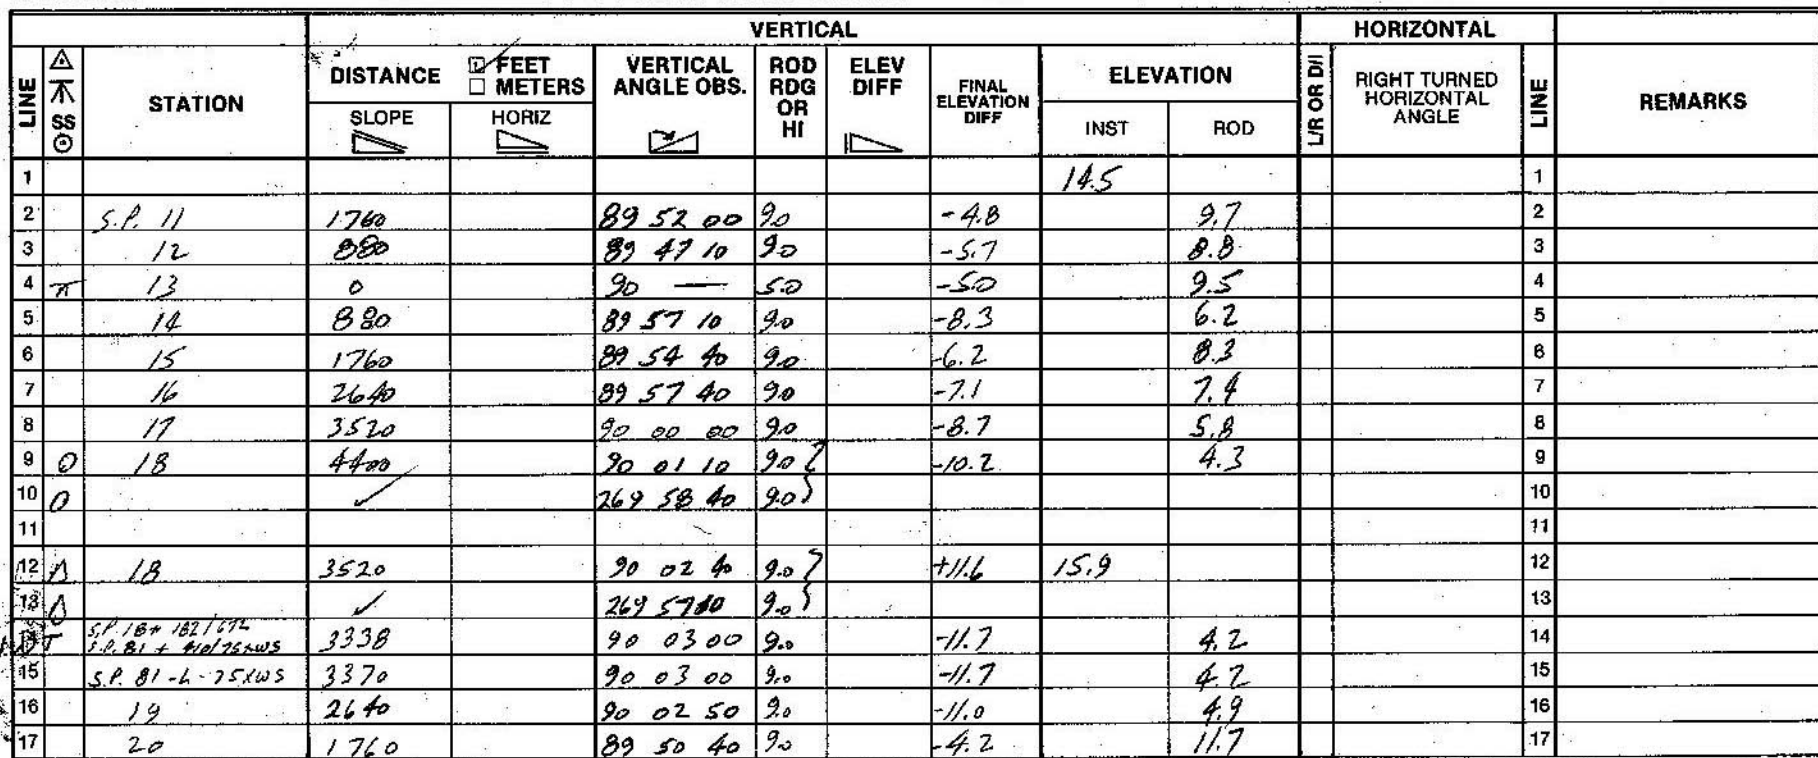 VERTICAL HORIZONTAL
LINE SS STATION DISTANCE FEET METERS VERTICAL ANGLE OBS. ROD RDG OR HI ELEV DIFF FINAL ELEVATION DIFF ELEVATION L/R OR D/I RIGHT TURNED HORIZONTAL ANGLE LINE REMARKS
SLOPE HORIZ INST ROD
1 14.5 1
2 S.P. 11 1760 89 52 00 9.0 -4.8 9.7 2
3 12 880 89 47 10 9.0 -5.7 8.8 3
4 13 0 90 — 5.0 -5.0 9.5 4
5 14 880 89 57 10 9.0 -8.3 6.2 5
6 15 1760 89 54 40 9.0 -6.2 8.3 6
7 16 2640 89 57 40 9.0 -7.1 7.4 7
8 17 3520 90 00 00 9.0 -8.7 5.8 8
9 18 4400 90 01 10 9.0 -10.2 4.3 9
10 ✓ 269 58 40 9.0 10
11 11
12 18 3520 90 02 40 9.0 +11.6 15.9 12
13 ✓ 269 57 10 9.0 13
S.P. 18+ 182/672
S.P. 81 + 410/25XWS 3338 90 03 00 9.0 -11.7 4.2 14
15 S.P. 81-L-25XWS 3370 90 03 00 9.0 -11.7 4.2 15
16 19 2640 90 02 50 9.0 -11.0 4.9 16
17 20 1760 89 50 40 9.0 -4.2 11.7 17